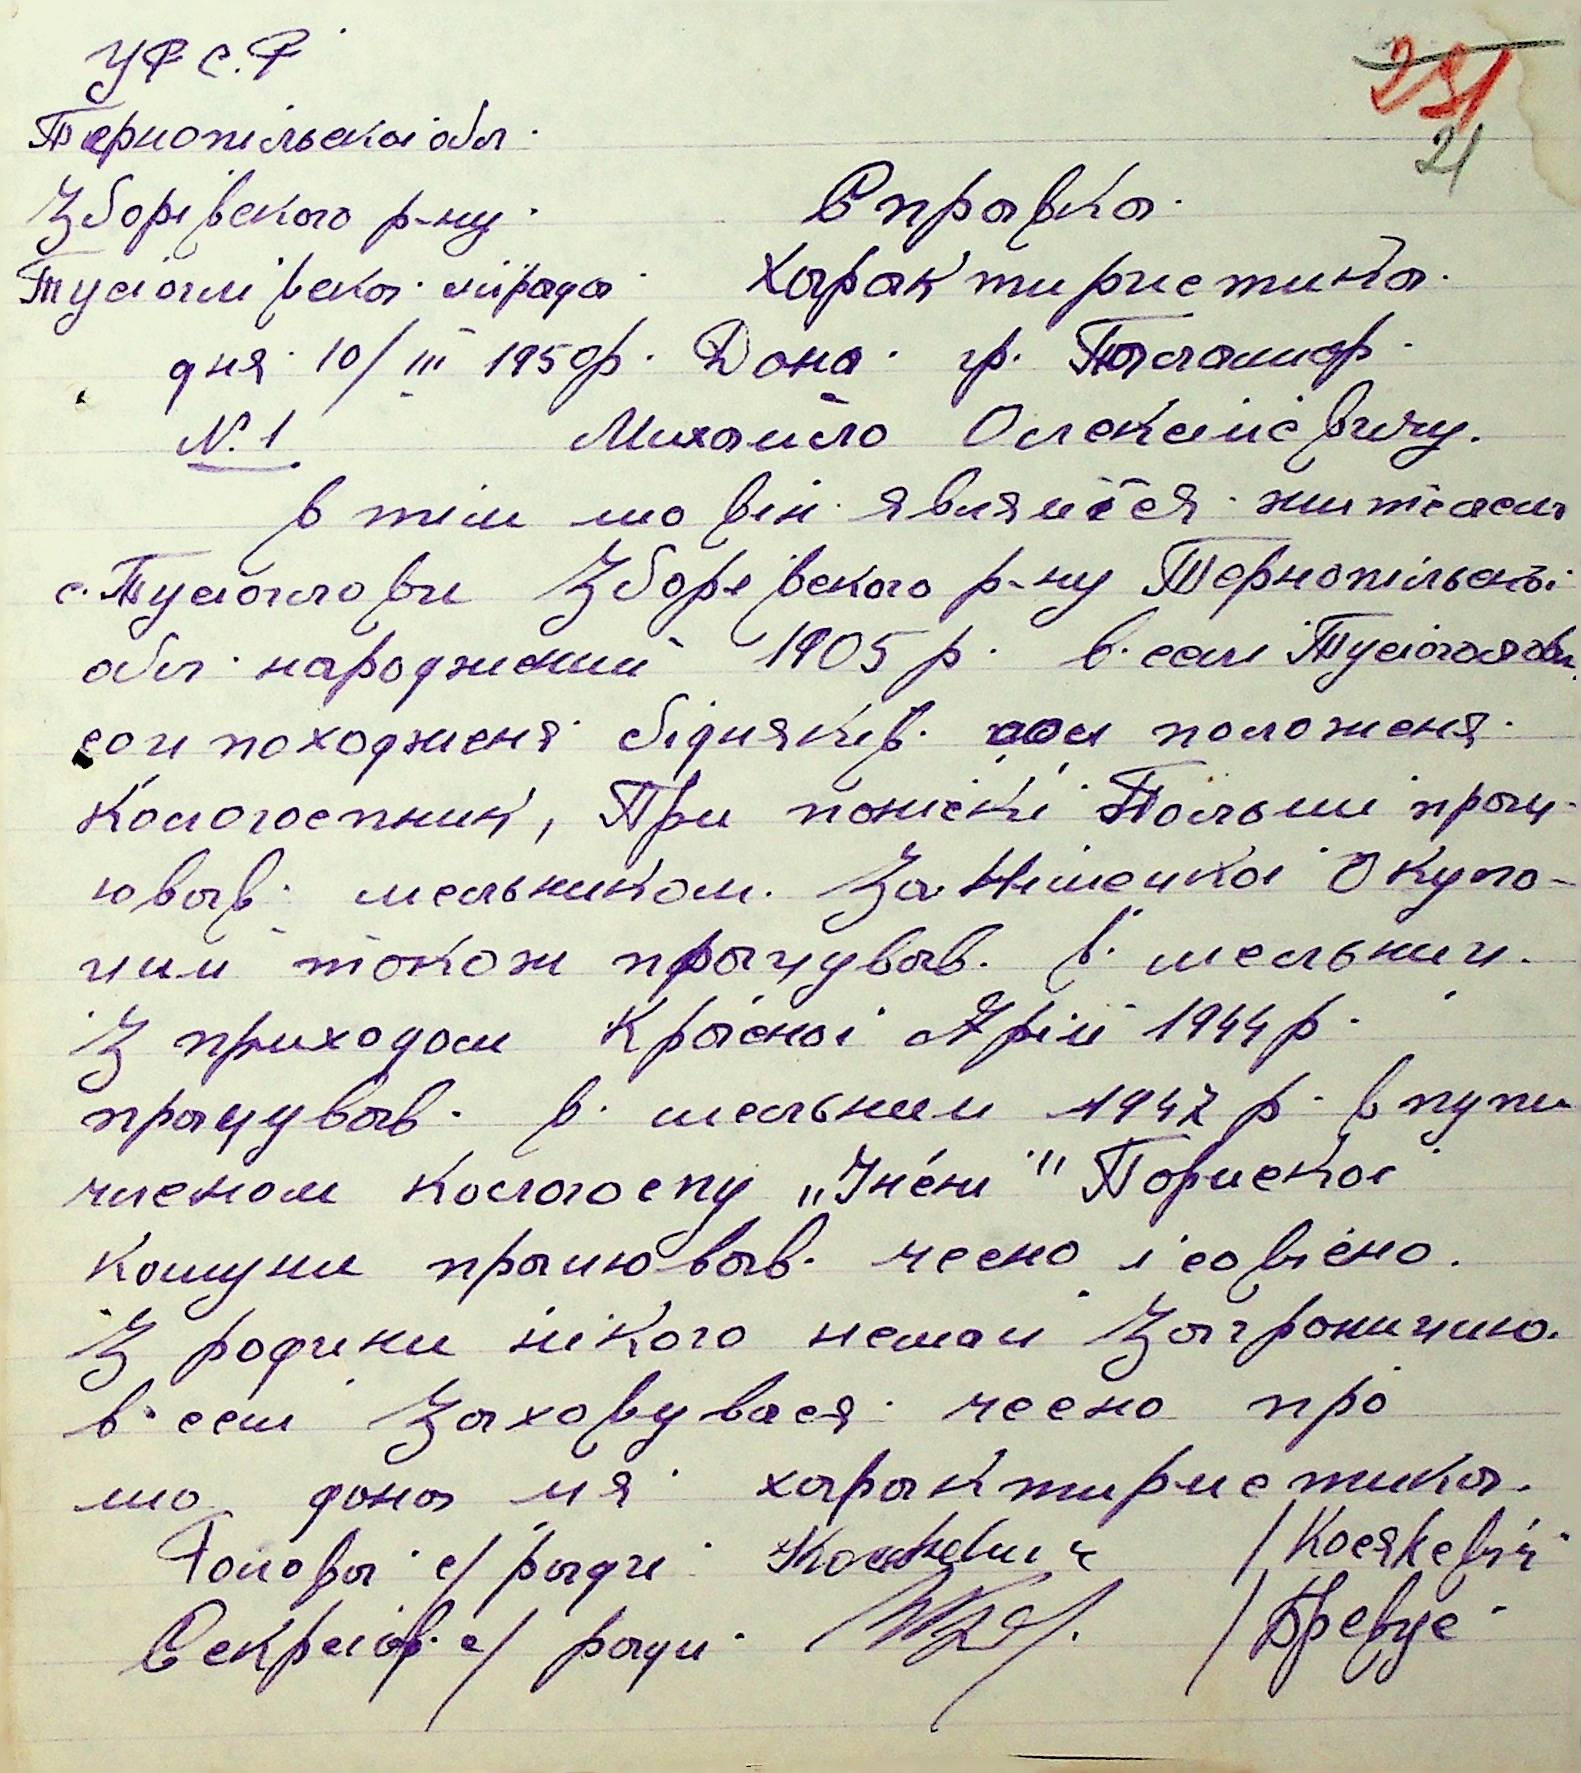 УРСР
251
Тернопільскоі обл.
21
Зборівского р-ну.
Справка.
Тустголівска с/рада
Характиристика.
дня 10/III 1950р. Дана. гр.
№ 1 Михайло Олексієвичу.
в тім що він являйтся жителем
с. Тустоголови Зборівского р-ну Тернопільскоі
обл. народжений 1905 р. в. селі Тустоголови
соц походженя бідняків. соц положеня.
Колгоспник, При панскі Польши працю-
ював мельником. За Німецкоі Окупа-
ции також працував. в. мельниц.
З приходом Красноі Армії 1944 р.
працував. в. мельници 1947 р. вступи
членом колгоспу „Імени" Парискоі
комуни працював. чесно і совісно.
З родини нікого немаі заграницию.
в. селі заховувася чесно про
що дана ця характиристика.
Голова с/ради /Косякевич
Секретар. с/ ради.